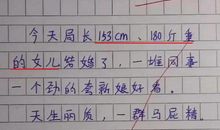 今天局长153cm、180斤重
的女儿结婚了，一堆同事
一个劲的夸新娘好看。
天生丽质，一群马屁精。